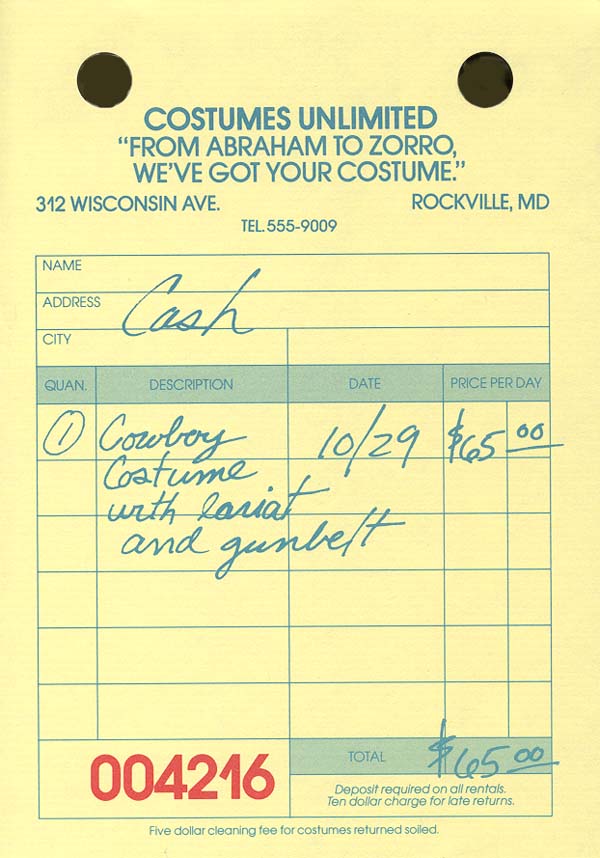 COSTUMES UNLIMITED
“FROM ABRAHAM TO ZORRO,
WE’VE GOT YOUR COSTUME.”
312 WISCONSIN AVE. ROCKVILLE, MD
TEL. 555-9009
NAME
ADDRESS Cash
CITY
QUAN. DESCRIPTION DATE PRICE PER DAY
1 Cowboy 10/29 $65 00
Costume
with lariat
and gunbelt
004216 TOTAL $65 00
Deposit required on all rentals.
Ten dollar charge for late returns.
Five dollar cleaning fee for costumes returned soiled.